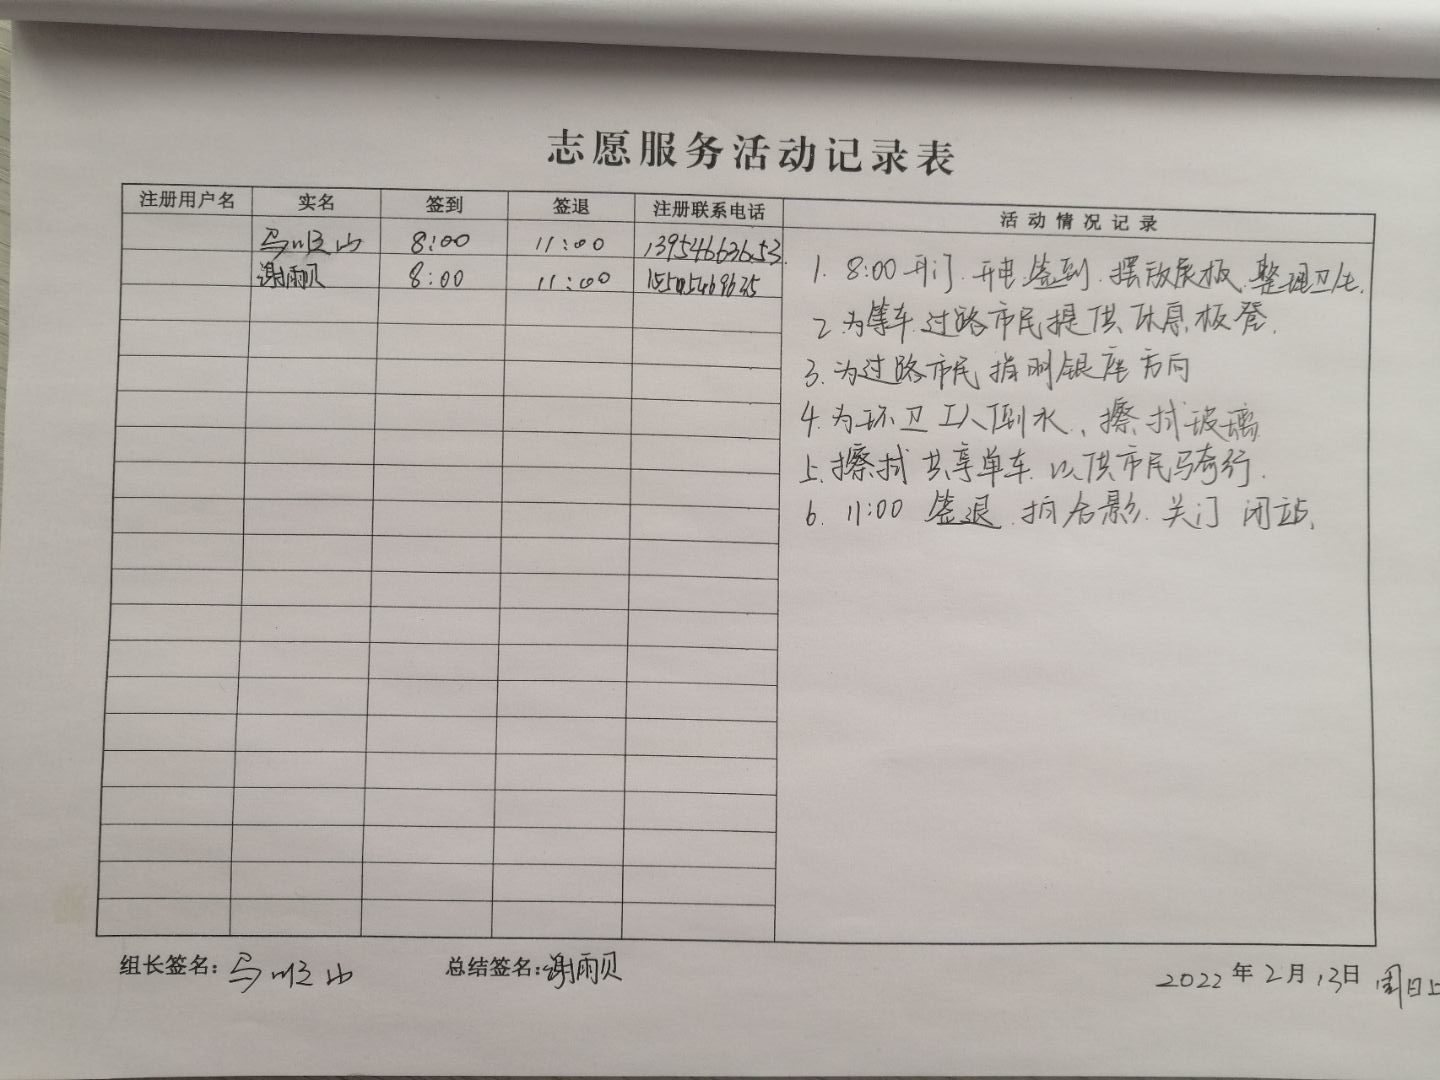 志愿服务活动记录表
注册用户名 实名 签到 签退 注册联系电话 活动情况记录
马顺山 8:00 11:00 13954663653
谢雨贝 8:00 11:00
1. 8:00开门.开电.签到.摆放展板.整理卫生.
2.为等车.过路市民提供休息板凳.
3.为过路市民指明银座方向
4.为环卫工人倒水、擦拭玻璃
5.擦拭共享单车以供市民骑行.
6. 11:00 签退.拍合影.关门 闭站.
组长签名:马顺山 总结签名:谢雨贝 2022年2月13日 周日上